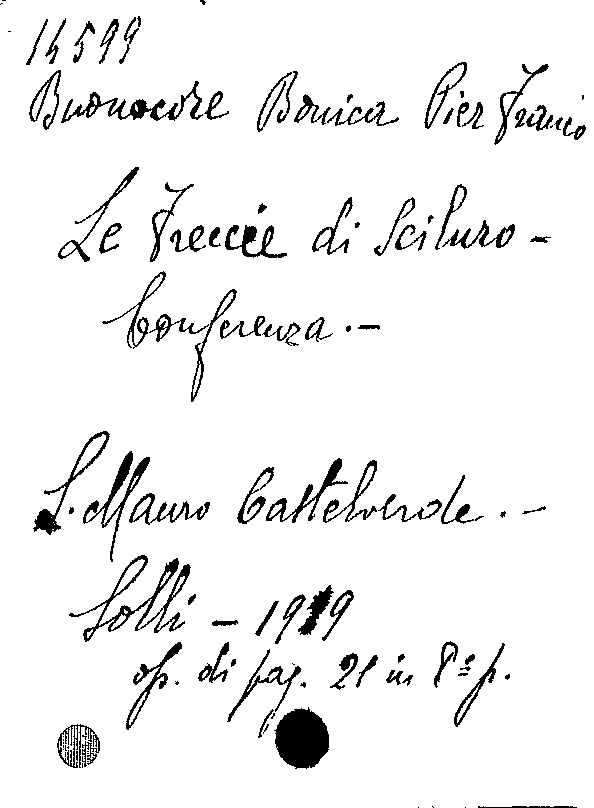 14599
Buonocore Bonica Pier Franco
Le Freccie di Sciluro -
Conferenza . -
S. Mauro Castelverde . -
Lolli - 1919
op. di pag. 21 in 8º p.